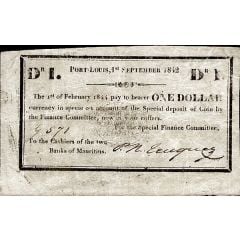 Dr 1. PORT-LOUIS, 1st SEPTEMBER 1842 Dr 1
The 1st of February 1844 pay to bearer ONE DOLLAR
currency in specie on account of the Special deposit of Coin by
the Finance Committee, now in your coffers.
For the Special Finance Committee,
To the Cashiers of the two
Banks of Mauritius.